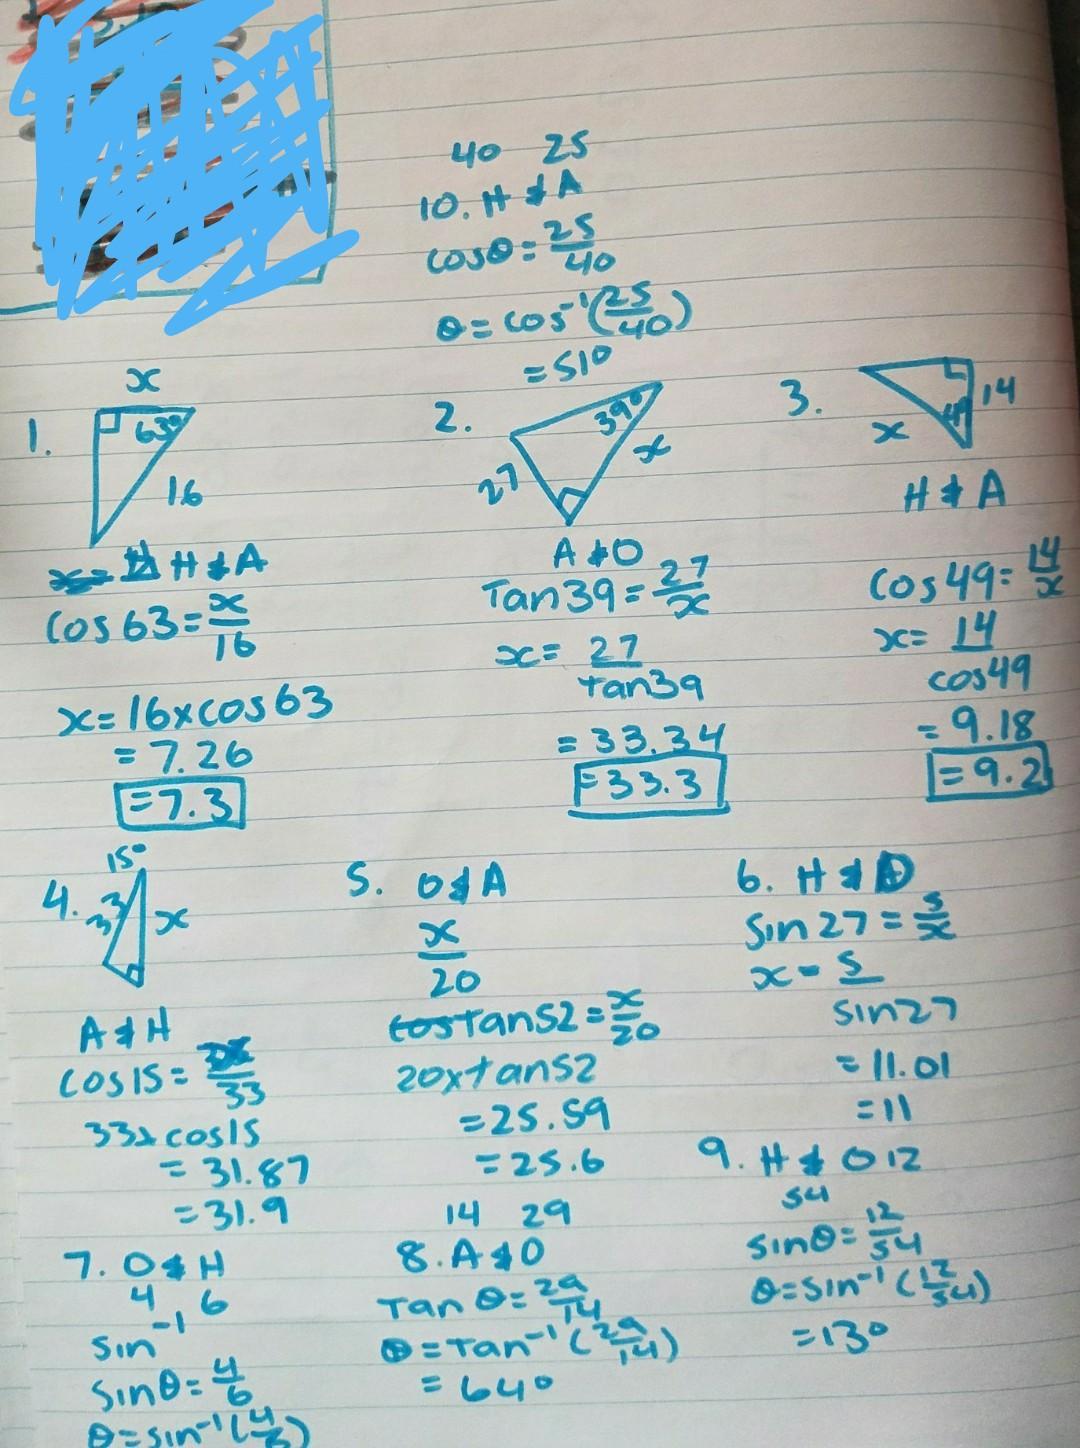 40 25
10. H & A
cosθ = 25/40
θ = cos⁻¹(25/40)
= 51°
1.
x
63°
16
H & A
cos 63 = x/16
x = 16 x cos 63
= 7.26
= 7.3
2.
39°
27
x
A & O
Tan 39 = 27/x
x = 27/tan39
= 33.34
= 33.3
3.
14
x
H & A
cos 49 = 14/x
x = 14/cos49
= 9.18
= 9.2
4.
15°
33
x
A & H
cos 15 = /33
33 x cos15
= 31.87
= 31.9
5. O & A
x/20
cos Tan 52 = x/20
20 x tan 52
= 25.59
= 25.6
6. H & O
sin 27 = 5/x
x = 5/sin27
= 11.01
= 11
7. O & H
4 6
sin⁻¹
sinθ = 4/6
θ = sin⁻¹(4/6)
14 29
8. A & O
Tan θ = 29/14
θ = Tan⁻¹(29/14)
= 64°
9. H & O 12
54
sinθ = 12/54
θ = sin⁻¹(12/54)
= 13°